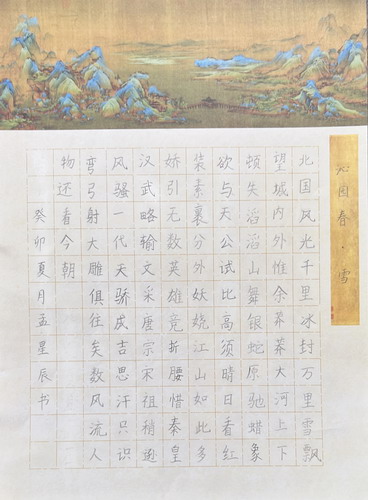 沁园春·雪
北国风光千里冰封万里雪飘
望城内外惟余莽莽大河上下
顿失滔滔山舞银蛇原驰蜡象
欲与天公试比高须時日看红
装素裹分外妖娆江山如此多
娇引无数英雄竞折腰惜秦皇
汉武略输文采唐宗宋祖稍逊
风骚一代天骄成吉思汗只识
弯弓射大雕俱往矣数风流人
物还看今朝
癸卯夏月孟星辰书